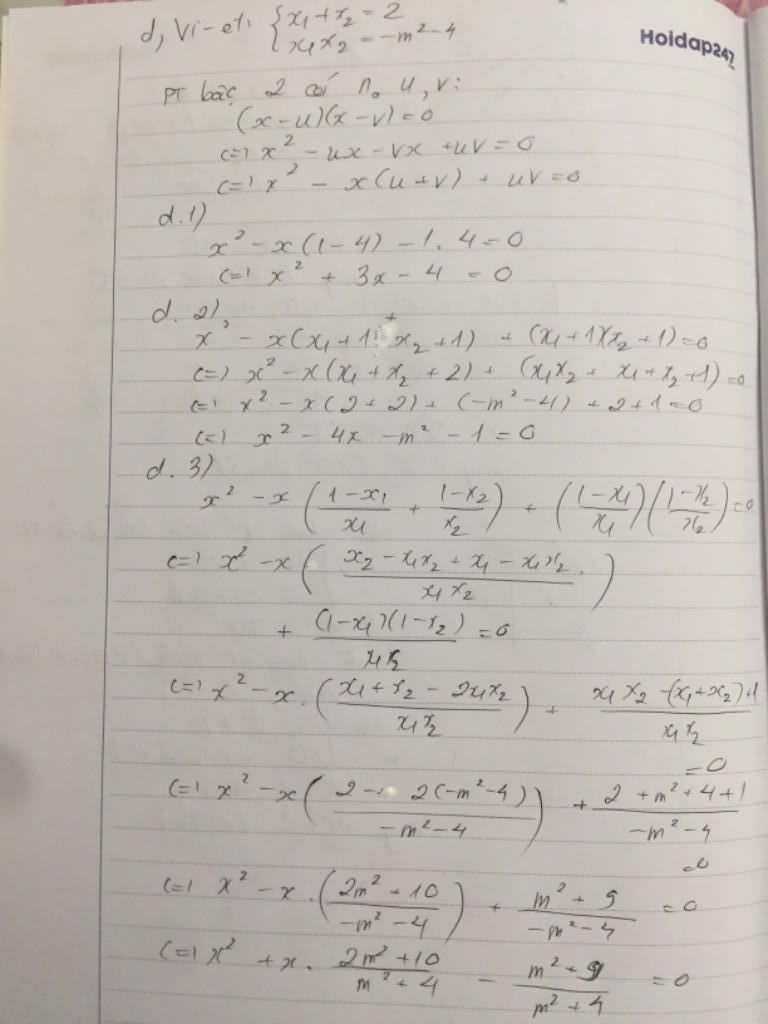 Hoidap247
d, Vi-et: { x₁ + x₂ = 2
x₁x₂ = -m² - 4
PT bậc 2 có n₀ u, v:
(x - u)(x - v) = 0
<=> x² - ux - vx + uv = 0
<=> x² - x(u+v) + uv = 0
d.1)
x² - x(1-4) - 1.4 = 0
<=> x² + 3x - 4 = 0
d. 2)
x² - x(x₁ + 1 + x₂ + 1) + (x₁+1)(x₂+1) = 0
<=> x² - x(x₁ + x₂ + 2) + (x₁x₂ + x₁ + x₂ + 1) = 0
<=> x² - x(2 + 2) + (-m² - 4) + 2 + 1 = 0
<=> x² - 4x - m² - 1 = 0
d. 3)
x² - x ((1-x₁)/x₁ + (1-x₂)/x₂) + ((1-x₁)/x₁)((1-x₂)/x₂) = 0
<=> x² - x ((x₂ - x₁x₂ + x₁ - x₁x₂)/(x₁x₂))
+ ((1-x₁)(1-x₂))/(x₁x₂) = 0
<=> x² - x . ((x₁ + x₂ - 2x₁x₂)/(x₁x₂)) + (x₁x₂ - (x₁+x₂) + 1)/(x₁x₂)
= 0
<=> x² - x ((2 - 2(-m²-4))/(-m²-4)) + (2 + m² + 4 + 1)/(-m² - 4)
= 0
<=> x² - x . ((2m² + 10)/(-m² - 4)) + (m² + 9)/(-m² - 4) = 0
<=> x² + x . (2m² + 10)/(m² + 4) - (m² + 9)/(m² + 4) = 0